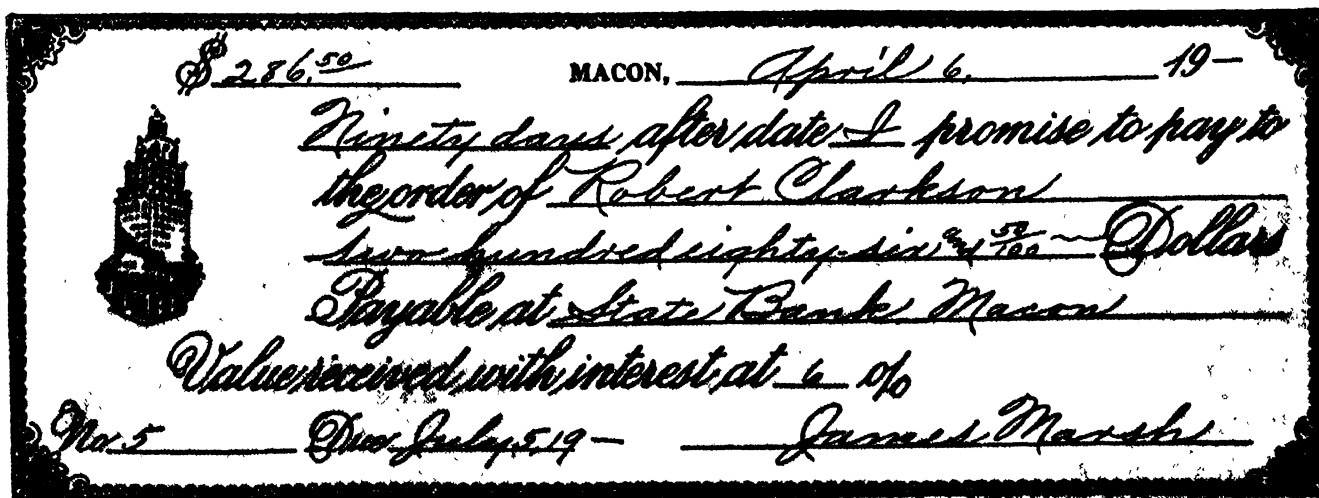 $ 286.50 MACON, April 6, 19—
Ninety days after date I promise to pay to
the order of Robert Clarkson
two hundred eighty-six and 50/100 — Dollars
Payable at State Bank Macon
Value received with interest at 6 %
No. 5 Due July 5, 19— James Marsh